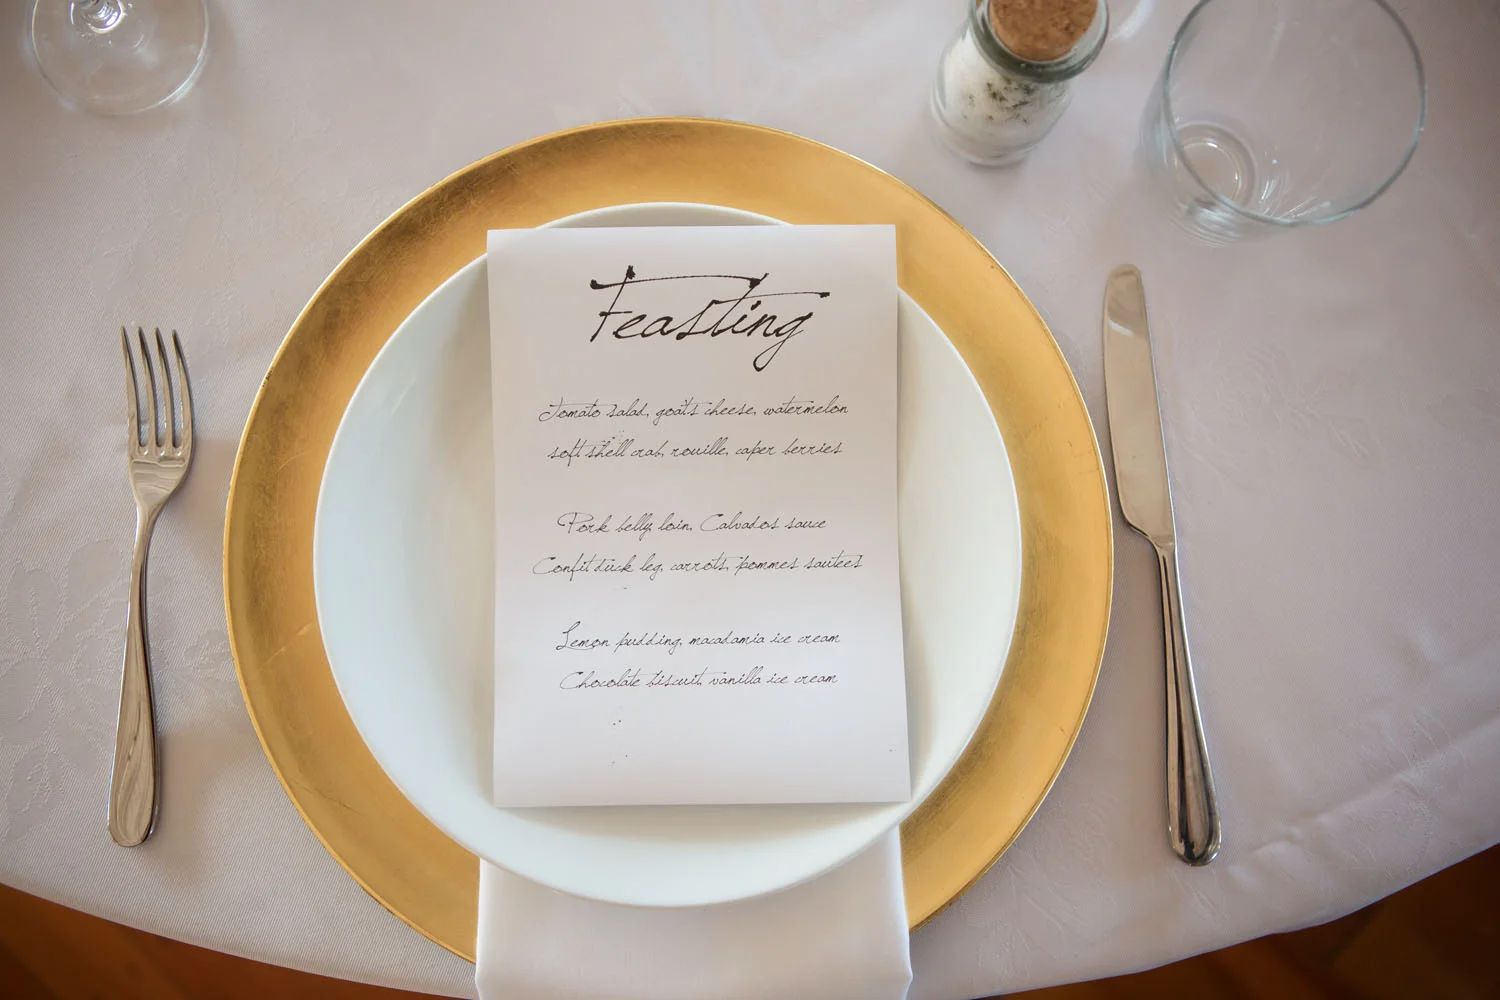 Feasting
Tomato salad, goat's cheese, watermelon
soft shell crab, rouille, caper berries
Pork belly, loin, Calvados sauce
Confit duck leg, carrots, pommes sautees
Lemon pudding, macadamia ice cream
Chocolate biscuit, vanilla ice cream